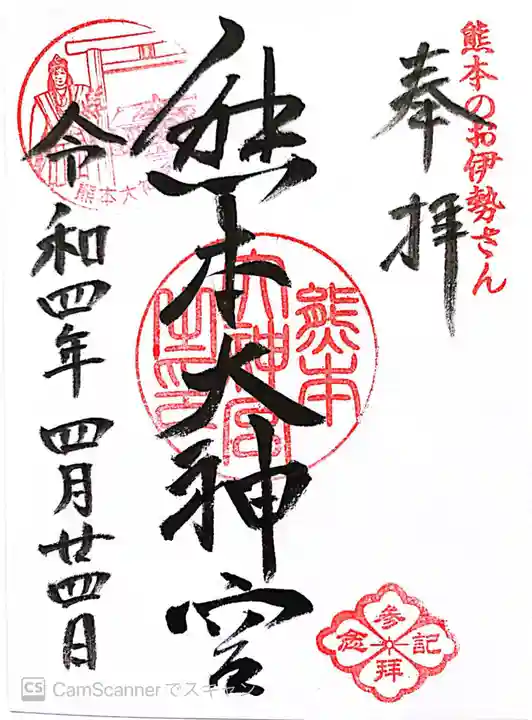 熊本のお伊勢さん
奉拝
熊本大神宮
熊本
大神宮
之印
令和四年四月廿四日
熊本大神
参拝記念
CS CamScannerでスキャン